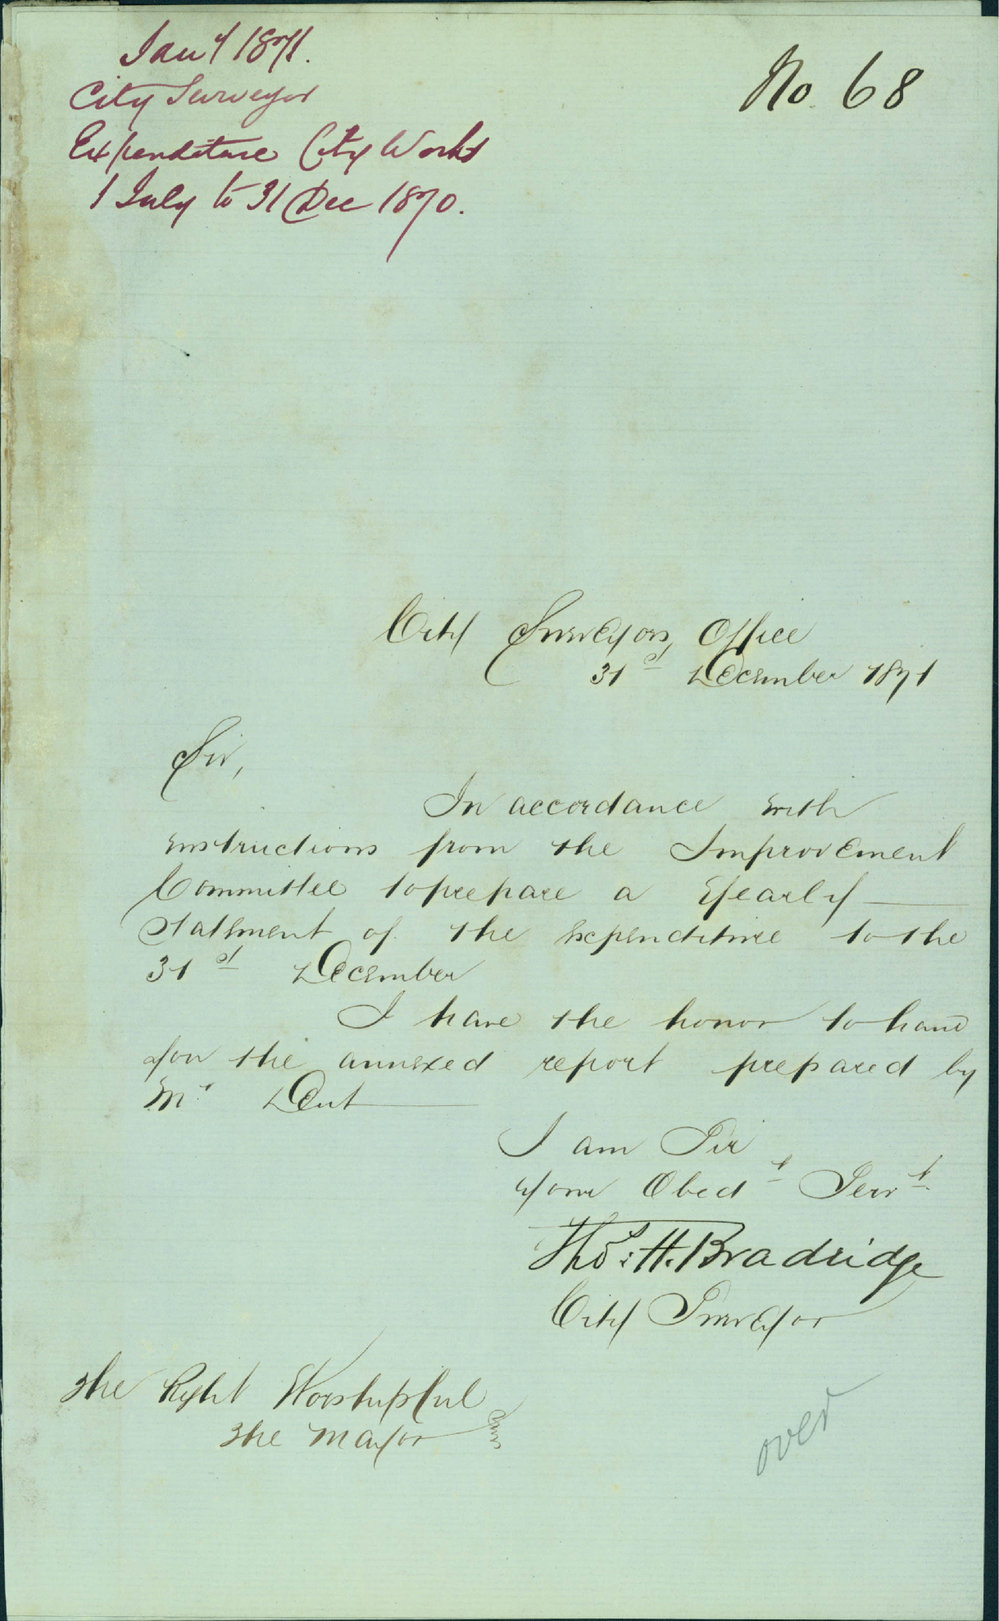 Jany 1871.
City Surveyor
Expenditure City Works
1 July to 31 Dec 1870.
No. 68
City Surveyors, Office
31st December 1871
Sir,
In accordance with
instructions from the Improvement
Committee to prepare a Yearly
Statement of the Expenditure to the
31st December
I have the honor to hand
you the annexed report prepared by
Mr. Dent
I am Sir
your Obedt Servt
Thos: H. Bradridge
City Surveyor
The Right Worshipful
The Mayor
over